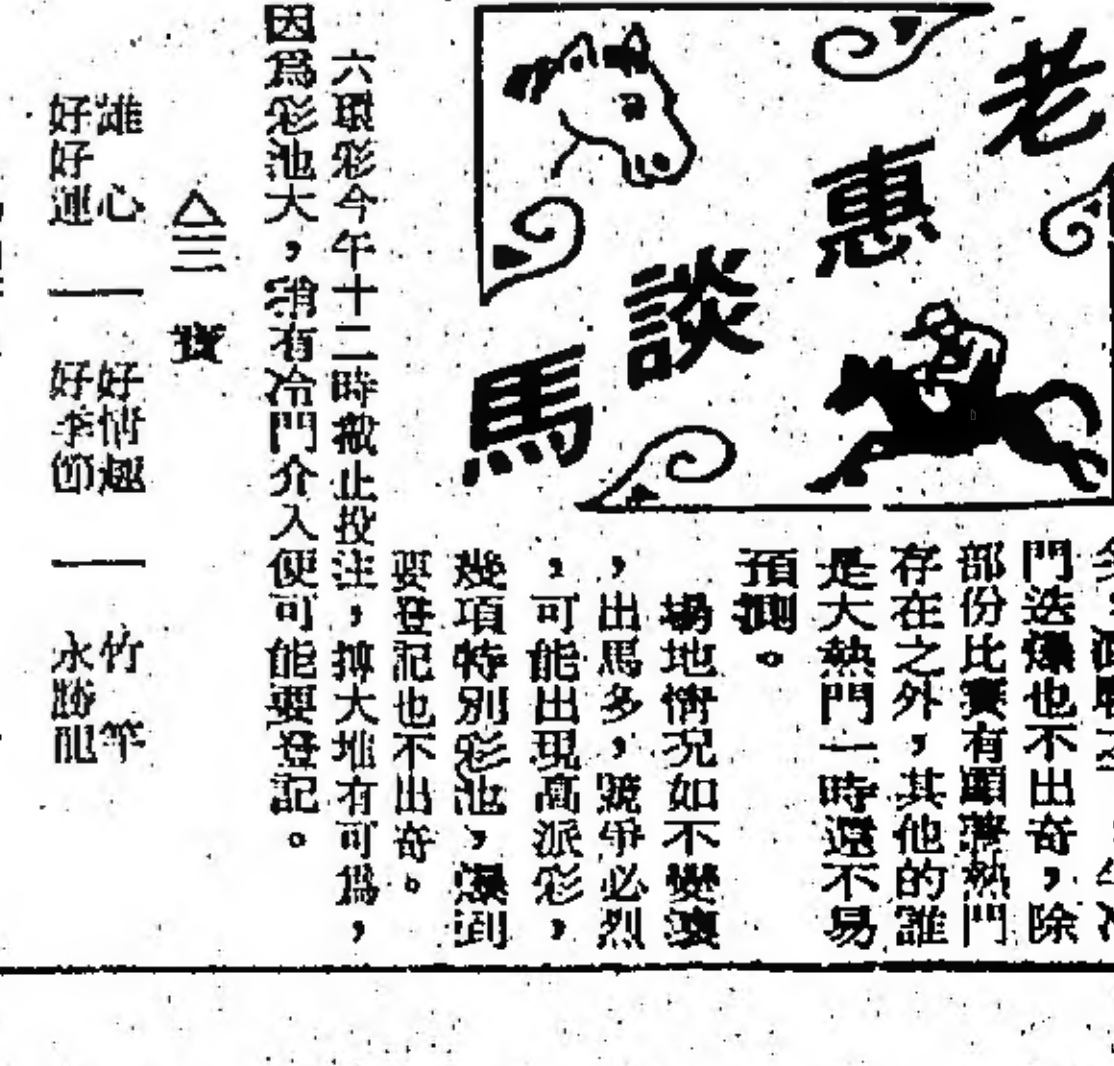 老惠談馬
門迭爆也不出奇,除
部份比賽有顯著熱門
存在之外,其他的誰
是大熱門一時還不易
預測。
場地情況如不變壞
,出馬多,競爭必烈
,可能出現高派彩,
幾項特別彩池,爆到
要登記也不出奇。
六環彩今午十二時截止投注,搏大堆有可為,
因爲彩池大,稍有冷門介入便可能要登記。
△三寶
雄心 — 好情趣 — 竹竿
好好運 — 好季節 — 永勝龍